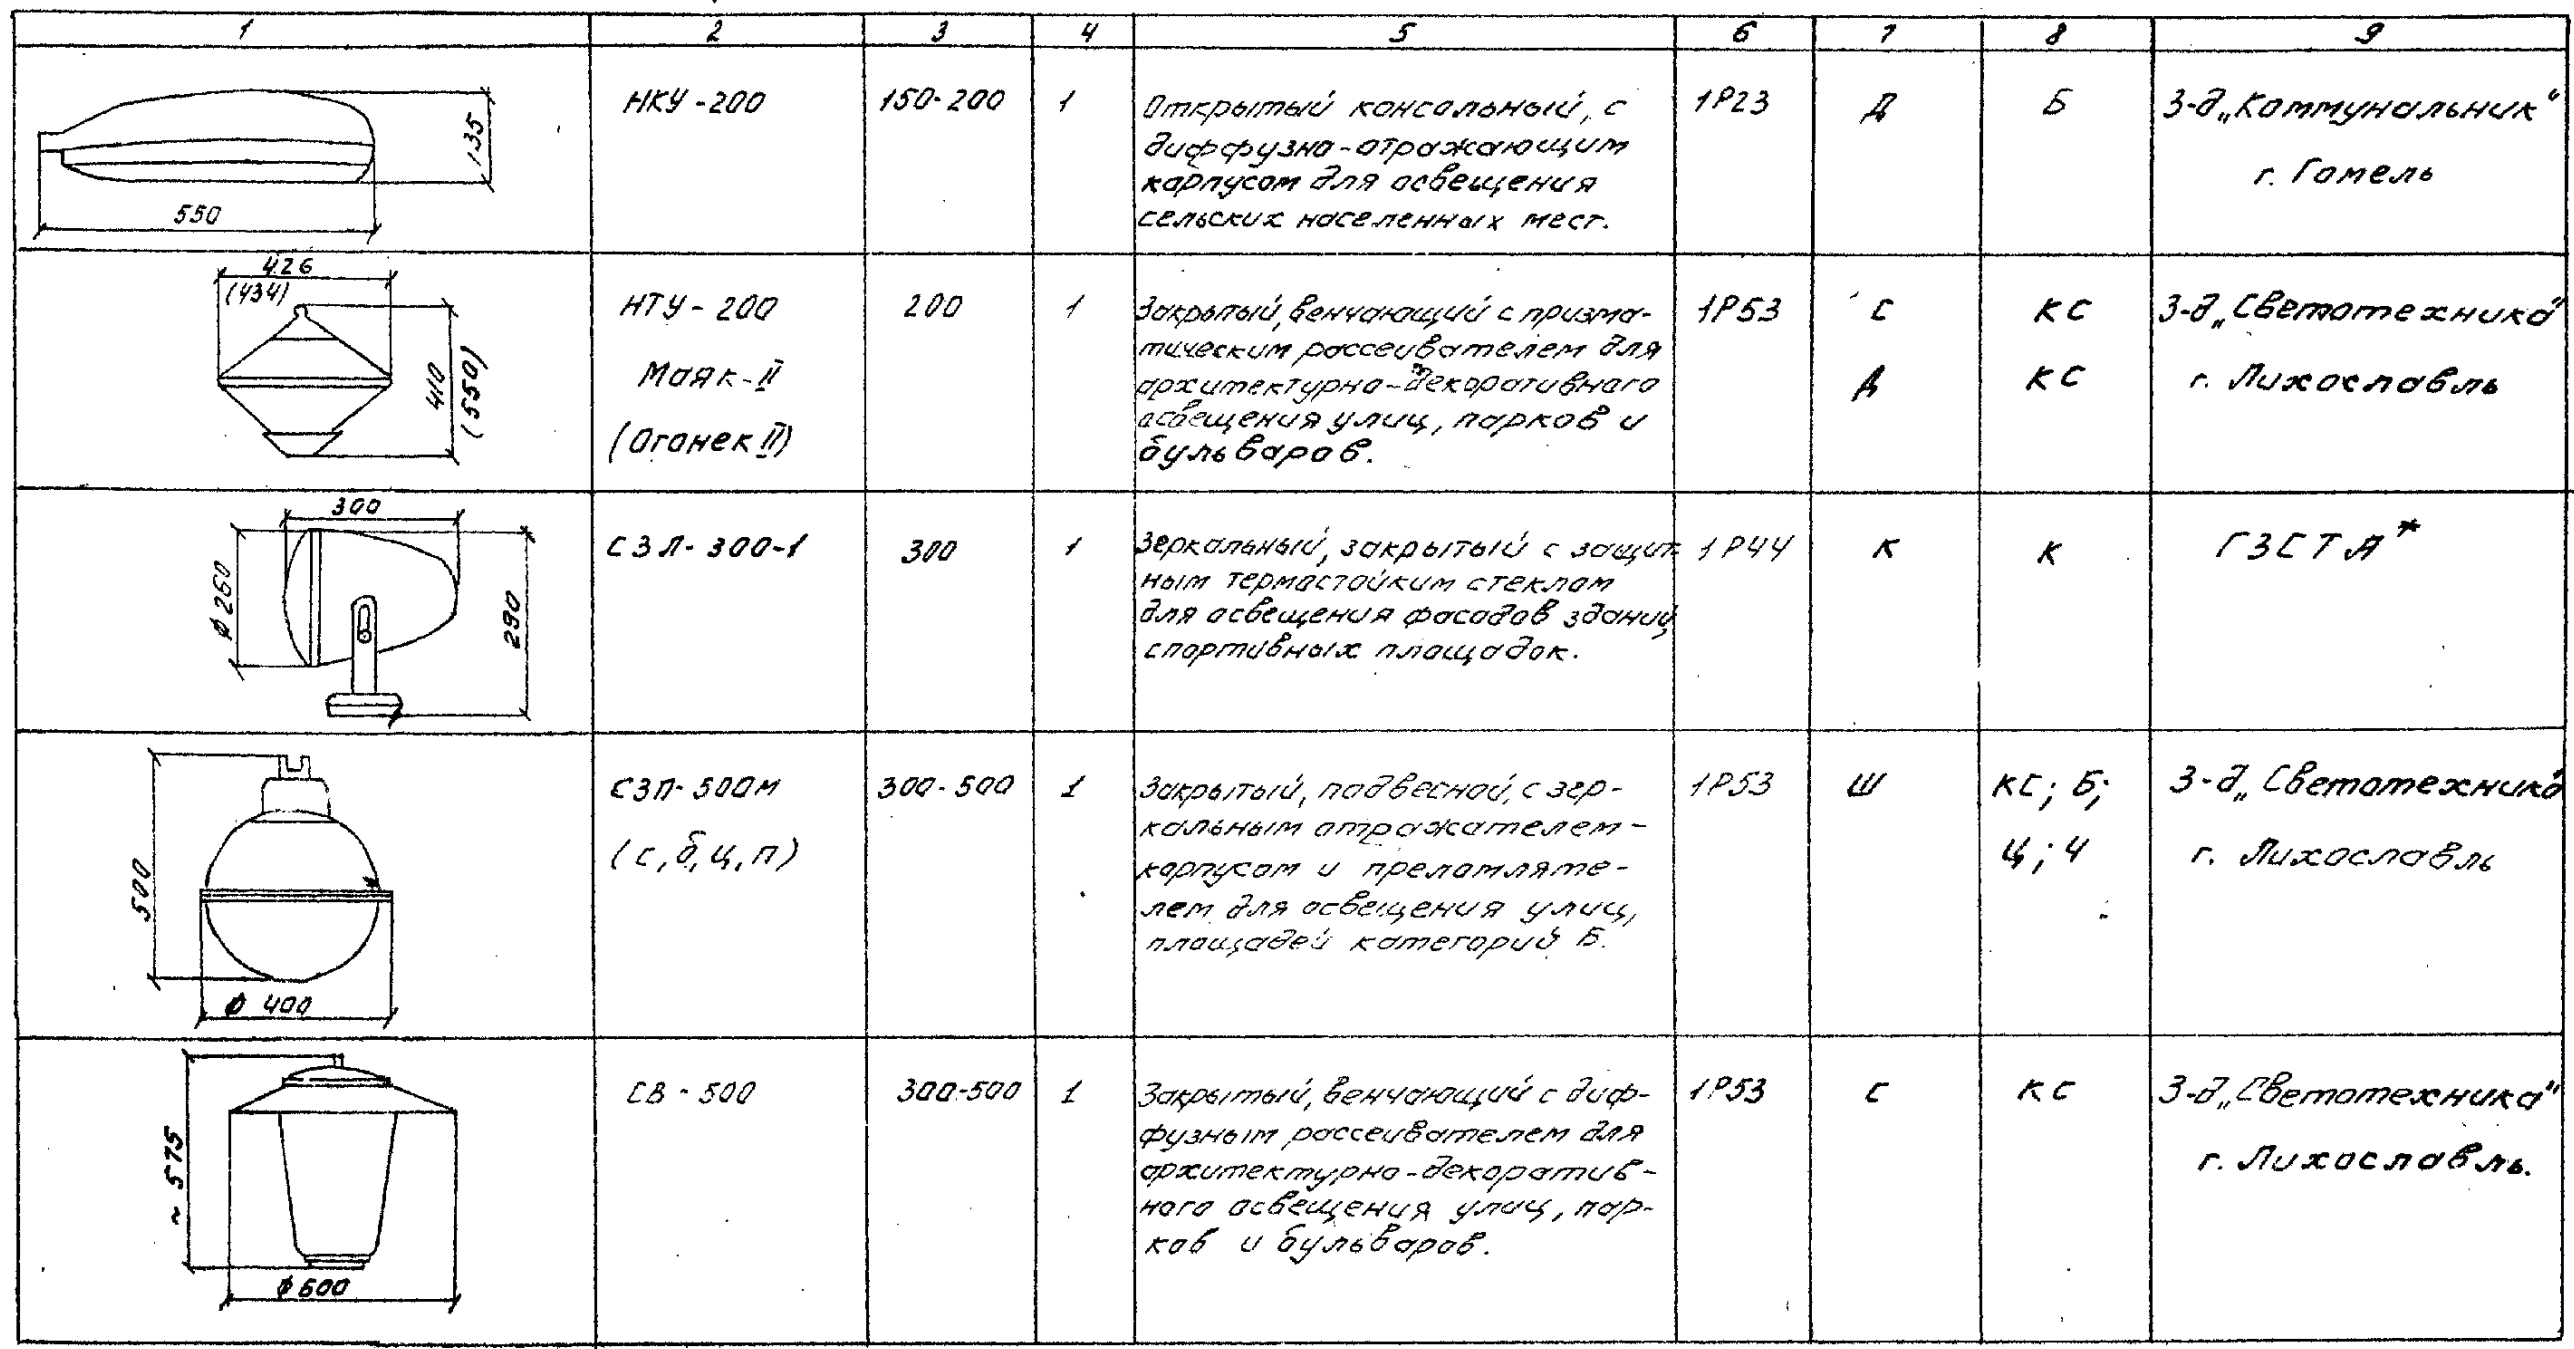 1 2 3 4 5 6 7 8 9
135
550
НКУ-200
150-200
1
Открытый консольный, с
диффузно-отражающим
корпусом для освещения
сельских населенных мест.
1Р23
Д
Б
З-д „Коммунальник"
г. Гомель
426
(434)
410
(550)
НТУ-200
Маяк-II
(Огонек II)
200
1
Закрытый, венчающий с призма-
тическим рассеивателем для
архитектурно-декоративного
освещения улиц, парков и
бульваров.
1Р53
С
Д
КС
КС
З-д „Светотехника"
г. Лихославль
300
ф 260
290
СЗЛ-300-1
300
1
Зеркальный, закрытый с защит-
ным термостойким стеклом
для освещения фасадов зданий,
спортивных площадок.
1Р44
К
К
ГЗСТА*
500
ф 400
СЗП-500м
(с, б, ц, п)
300-500
1
Закрытый, подвесной, с зер-
кальным отражателем-
корпусом и преломляте-
лем для освещения улиц,
площадей категорий Б.
1Р53
Ш
КС; Б;
Ц; Ч
З-д „Светотехника
г. Лихославль
~ 575
ф 500
СВ-500
300-500
1
Закрытый, венчающий с диф-
фузным рассеивателем для
архитектурно-декоратив-
ного освещения улиц, пар-
ков и бульваров.
1Р53
С
КС
З-д „Светотехника"
г. Лихославль.